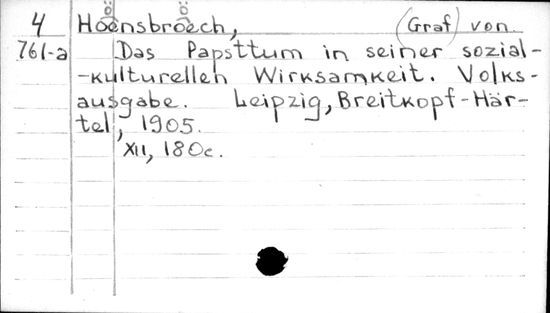 ö ö
4 Hoensbroech, (Graf) von
761-a Das Papsttum in seiner sozial-
-kulturellen Wirksamkeit. Volks-
ausgabe. Leipzig, Breitkopf-Här-
tel, 1905.
XII, 180c.